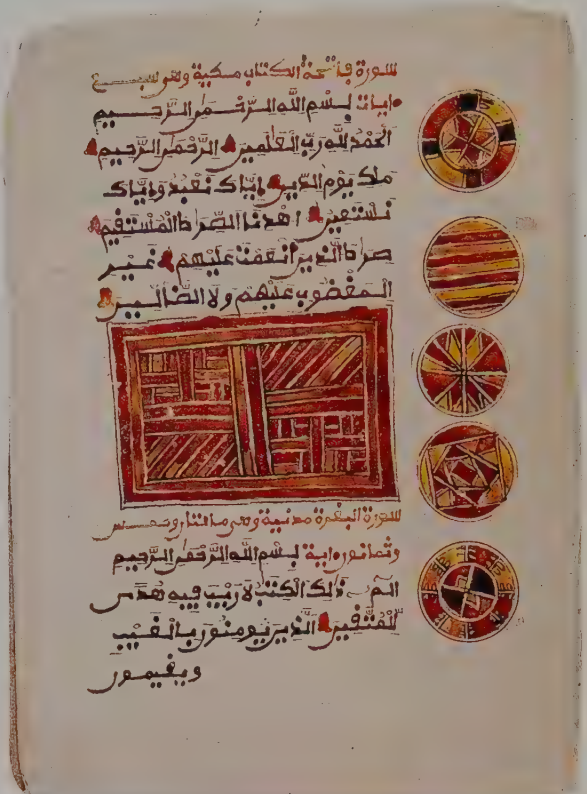 سورة فاتحة الكتاب مكية وهي سبع
ايات بسم الله الرحمن الرحيم
الحمد لله رب العلمين الرحمن الرحيم
ملك يوم الدين اياك نعبد واياك
نستعين اهدنا الصراط المستقيم
صراط الذين انعمت عليهم غير
المغضوب عليهم ولا الضالين
سورة البقرة مدنية وهي مائتان وخمس
وثمانون اية بسم الله الرحمن الرحيم
الم ذلك الكتب لا ريب فيه هدى
للمتقين الذين يومنون بالغيب
ويقيمون